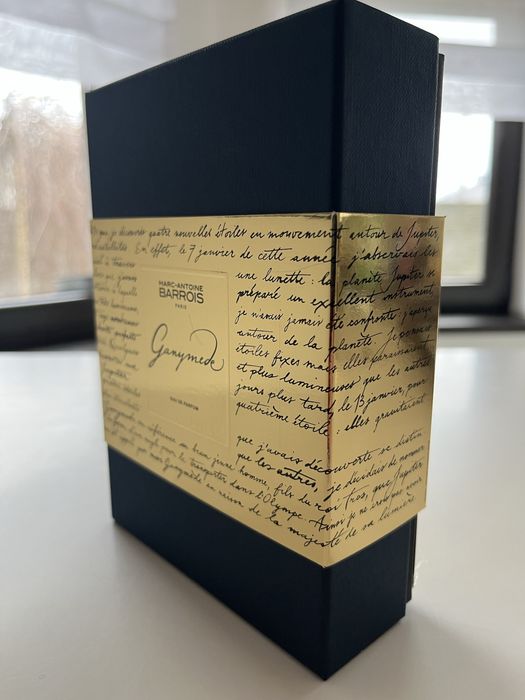 que je découvris quatre nouvelles étoiles en mouvement autour de Jupiter,
En effet, le 7 janvier de cette année j'observais les
une lunette : la planète Jupiter se
préparé un excellent instrument,
je n'avais jamais été confronté
autour de la planète. Je pensais
étoiles fixes mais elles paraissaient
et plus lumineuses que les autres
jours plus tard, le 13 janvier, pour
quatrième étoile : elles gravitaient
MARC-ANTOINE
BARROIS
PARIS
Ganymede
EAU DE PARFUM
que j'avais découverte se distin
que les autres, je décidais de nommer
en référence au bien jeune homme, fils du roi Tros, que Jupiter
en aigle pour le transporter dans l'Olympe. Ainsi je ne crois pas avoir
appelé par moi Ganymède en raison de la majesté de sa lumière